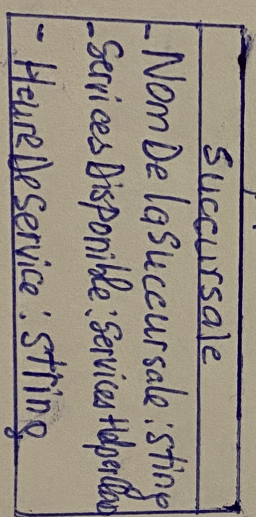 Succursale
- NomDelaSuccursale : string
- ServicesDisponible : Services
- HeureDeService : string